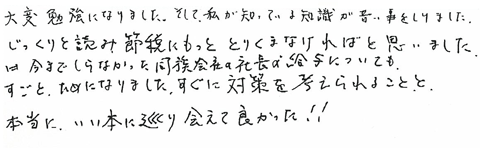 大変勉強になりました。そして私が知っている知識が古い事をしりました。
じっくりと読み節税にもっと とりくまなければと思いました。
今までしらなかった同族会社の社長の給与についても、
すごと、ためになりました。すぐに対策を考えられることと、
本当に、いい本に巡り会えて良かった!!